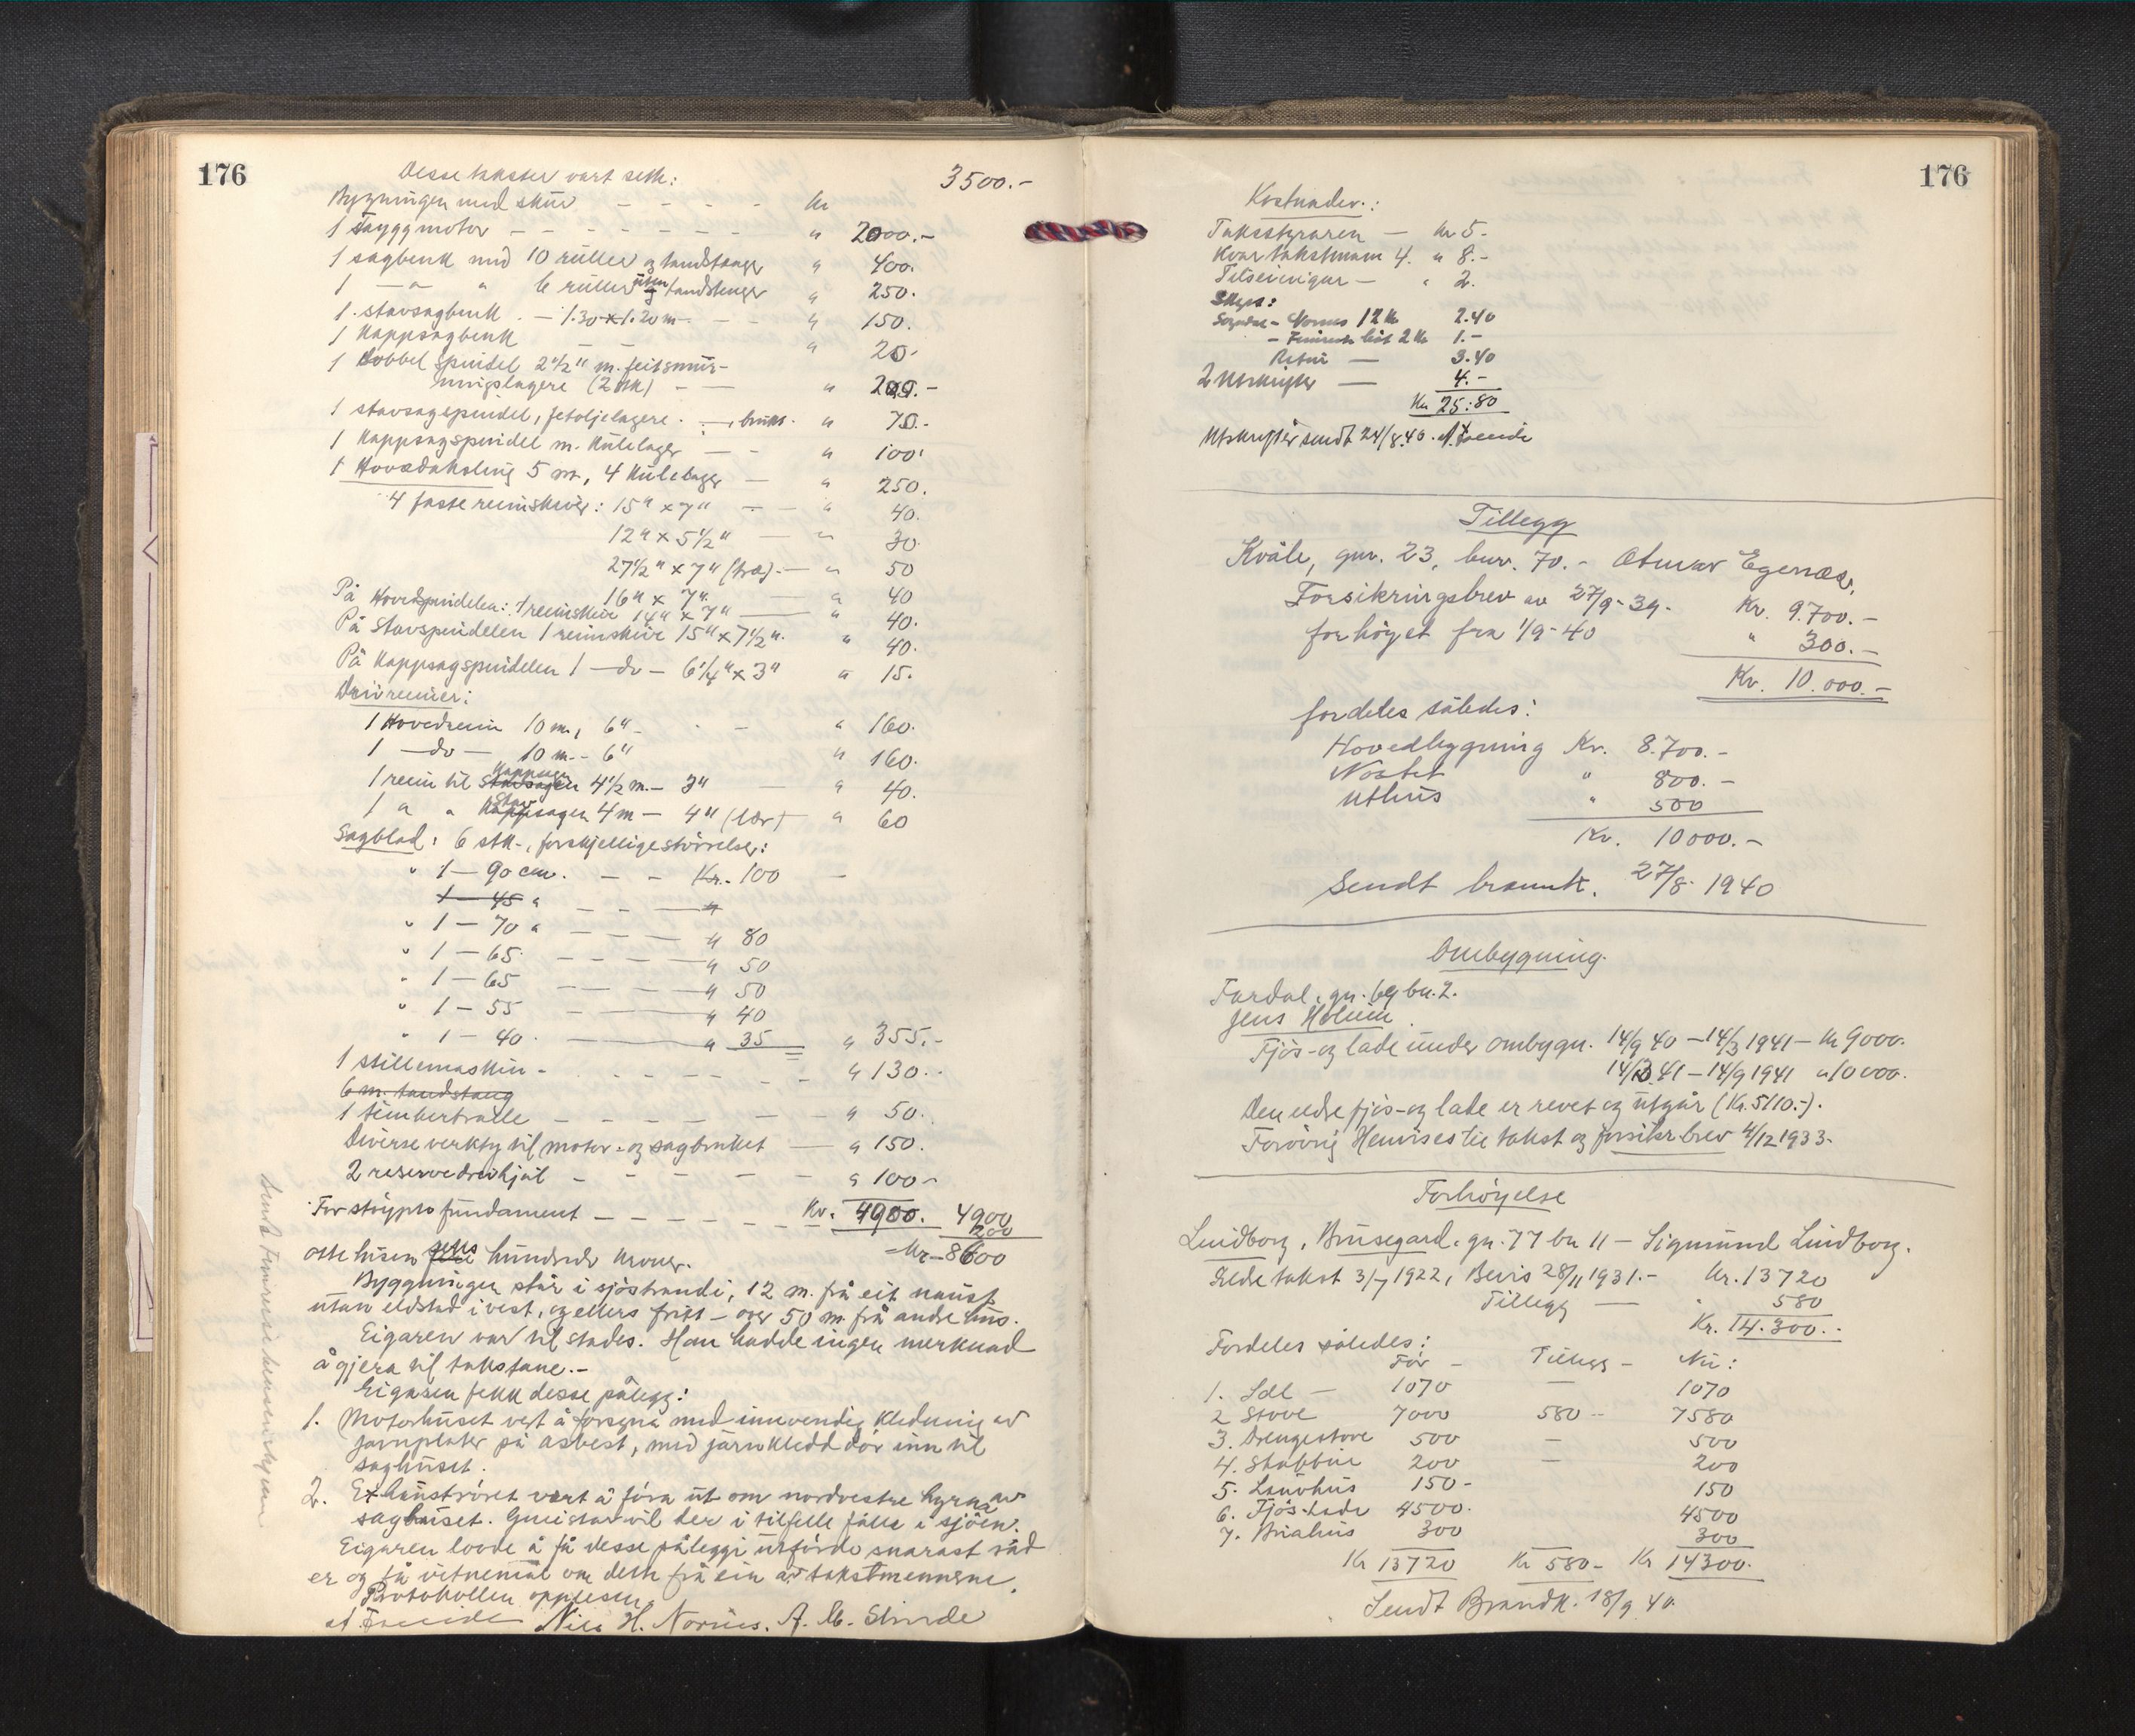 176
Desse takster vart sett:
Bygningen med skur - - - - kr 3500.-
1 Snyggmotor - - - - - - " 2000.-
1 sagbenk med 10 ruller og tandstenger " 400.
1 -"- " 6 ruller uten tandstenger " 250.
1 stavsagbenk - 1.30 x 1.20 m - - " 150.
1 Kappsagbenk - - " 20.
1 dobbel spindel 2 1/2" m. feitsmur-
ningslagere (2 stk) - - " 200.-
1 stavsagspindel, fetoljelagere. - , brukt. " 70.-
1 Kappsagspindel m. Kulelager - - " 100.
1 Hovedaksling 5 m, 4 Kulelager - " 250.
4 faste reimskiver: 15" x 7" - - " 40.
12" x 5 1/2" - " 30.
27 1/2" x 7" (tre) - " 50
16" x 7" - " 40
På Hovedspindelen: 1 reimskive 14" x 7" - " 40.
På Stavspindelen 1 reimskive 15" x 7 1/2". " 40.
På Kappsagspindelen 1 - do - 6 1/4" x 3" " 15.
Drivreimer:
1 Hovedreim 10 m, 6" - - " 160.
1 - do - 10 m. - 6" " 160.
1 reim til Stavsagen Kappsagen 4 1/2 m. - 3" - " 40.
1 " " Kappsagen Stav 4 m - 4" (lær) - " 60
Sagblad: 6 stk., forskjellige størrelser:
" 1 - 90 cm. - - Kr. 100 -
1 - 45 " - - "
" 1 - 70 " - - - " 80
" 1 - 65. - - - " 50
" 1 - 65 - - - " 50
" 1 - 55 - - " 40
" 1 - 40. - - " 35 " 355.-
1 stillemaskin - - - - - " 130.-
6 m. tandstang
1 timbertralle - - - - - " 50.
Diverse verktøy til motor- og sagbruket - " 150.
2 reservedrivhjul - - - - - " 100 -
For støypte fundament - - - - - Kr. 4900. 4900
200
Kr. 8600
otte tusen seks hundrede kroner.
Byggningen står i sjøstrandi, 12 m. frå eit naust
utan eldstad i vest, og ellers fritt - over 50 m frå andre hus.
Eigaren var til stades. Han hadde ingen merknad
å gjera til takstane.-
Eigaren fekk desse pålegg:
1. Motorhuset vert å forsyna med innvendig kledning av
jarnplater på asbest, med järnkledd dör inn til
saghuset.
2. Exhauströret vert å föra ut om nordvestre hyrna av
saghuset. Gneistar vil der i tilfelle falle i sjöen.
Eigaren lovde å få desse påleggi utförde snarast råd
er og få vitnemål om dette frå ein av takstmennerne.
Protokollen opplesen.
Nils H. Nornes. A. M. Slinde
176
Kostnader.:
Takstyraren - Kr 5.-
Kvar takstmann 4. " 8.-
Tilseiingar - " 2.
Skyss:
Sogndal - Nornes 12 km 2.40
- Fimreite båt 2 km 1.-
Retur - 3.40
2 Utskrifter - 4.-
Kr 25:80
Utskrifter sendt 24/8.40.
Tillegg
Kvåle, gnr. 23, bnr. 70. - Otmar Egenæs,
Forsikringsbrev av 27/9-39. Kr. 9.700.-
forhöyet fra 1/9-40 " 300.-
Kr. 10.000.-
fordeles således:
Hovedbygning Kr. 8.700.-
Nostet " 800.-
Uthus " 500
Kr. 10000.-
Sendt brannk. 27/8. 1940
Ombygning.
Fardal. gn. 69 bn. 2.
Jens Molum.
Fjös- og lade under ombygn. 14/9 40 - 14/3 1941 - Kr 9000.
14/3 41 - 14/9 1941 " 10000.
Den eldre fjös- og lade er revet og utgår (Kr. 5110.-).
Forövrig Henvises til takst og forsikr.brev 4/12 1933.
Forhöyelse
Lindborg, Brusegard. gn. 77 bn 11 - Sigmund Lindborg.
Elde takst 3/7 1922, Bevis 28/11 1931.- Kr. 13720
Tillegg - " 580
Kr. 14.300.-
Fordeles således:
För - Tillegg - Nu:
1. Ldl - 1070 - 1070
2 Stove 7000 580 - 7580
3. Drengestove 500 - 500
4. Stabbur 200 - 200
5. Lauvhus 150 - 150
6. Fjös-Lade 4500. 4500
7. Briahus 300 300
Kr 13720 Kr 580 - Kr 14300.
Sendt Brandk. 18/9 40.